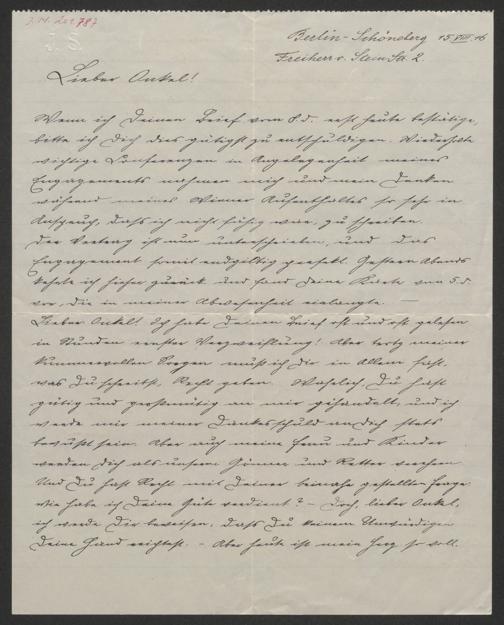 J.N. 202.787
J. S.
Berlin-Schöneberg 15 VIII 16
Freiherr v. Stein St. 2.
Lieber Onkel!
Wenn ich Deinen Brief vom 8. d. erst heute bestätige,
bitte ich Dich dies gütigst zu entschuldigen. Wiederholte
wichtige Conferenzen in Angelegenheit meines
Engagements nahmen mich und mein Denken
während meines Wiener Aufenthaltes so sehr in
Anspruch, daß ich nicht fähig war, zu schreiben.
Der Vertrag ist nun unterschrieben, und das
Engagement somit endgiltig perfekt. Gestern Abends
kehrte ich hieher zurück und fand Deine Karte vom 5. d.
vor, die in meiner Abwesenheit einlangte. —
Lieber Onkel! Ich habe Deinen Brief oft und oft gelesen
in Stunden ernster Verzweiflung! Aber trotz meiner
kummervollen Sorgen muß ich Dir in Allem fast,
was Du schreibst, Recht geben. Wahrlich, Du hast
gütig und großmütig an mir gehandelt, und ich
werde mir meiner Dankesschuld an Dich stets
bewußt sein. Aber auch meine Frau und Kinder
werden Dich als unseren Gönner und Retter verehren.
Und Du hast Recht mit Deiner beinahe gestellten Frage
wie habe ich Deine Güte verdient? – Doch, lieber Onkel,
ich werde Dir beweisen, daß Du keinem Unwürdigen
Deine Hand reichtest. – Aber heute ist mein Herz so voll.